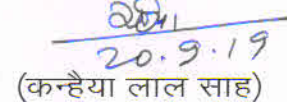 20.9.19
(कन्हैया लाल साह)